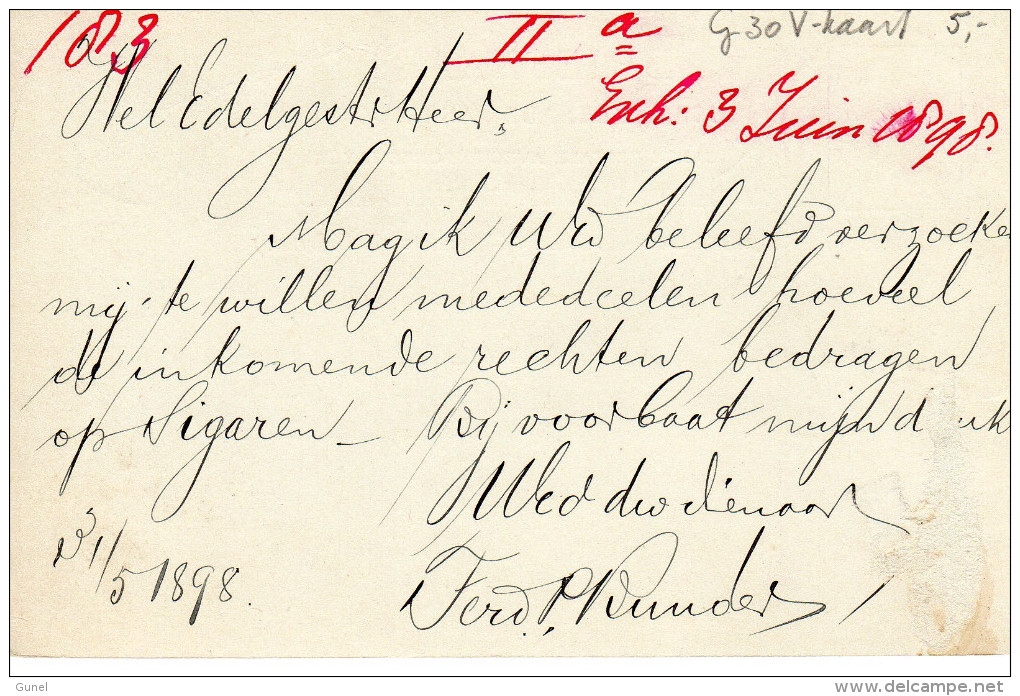 183 II a G 30 V-kaart 5,-
Wel Edelgestr Heer.
Enh: 3 Juin 1898.
Mag ik UEd beleefd verzoeken
mij te willen mededeelen hoeveel
de inkomende rechten bedragen
op Sigaren_ Bij voorbaat mijn d nk
UEd dw dienaar
31/5 1898.
Ferd. P. Runder
Gunel delcampe.net